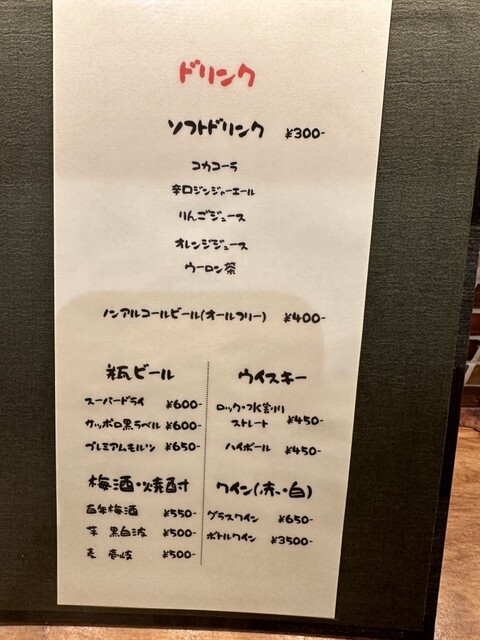 ドリンク
ソフトドリンク ¥300-
コカコーラ
辛口ジンジャーエール
りんごジュース
オレンジジュース
ウーロン茶
ノンアルコールビール(オールフリー) ¥400-
瓶ビール
スーパードライ ¥600-
サッポロ黒ラベル ¥600-
プレミアムモルツ ¥650-
ウイスキー
ロック・水割り
ストレート ¥450-
ハイボール ¥450-
梅酒・焼酎
百年梅酒 ¥550-
芋 黒白波 ¥500-
麦 壱岐 ¥500-
ワイン(赤・白)
グラスワイン ¥650-
ボトルワイン ¥3500-